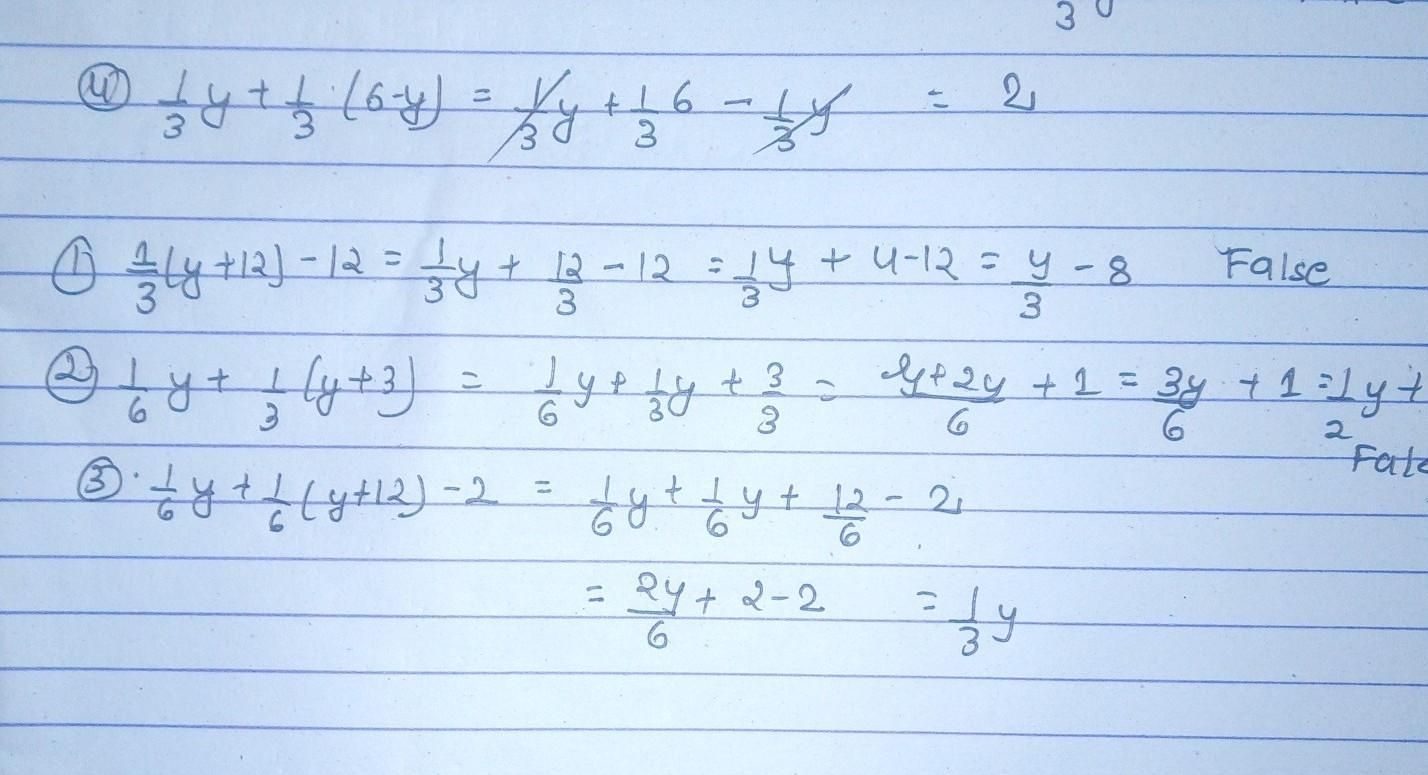 3 y
④ 1/3 y + 1/3 · (6-y) = 1/3 y + 1/3 6 - 1/3 y = 2
① 1/3 (y+12) - 12 = 1/3 y + 12/3 - 12 = 1/3 y + 4-12 = y/3 - 8 False
② 1/6 y + 1/3 (y+3) = 1/6 y + 1/3 y + 3/3 = y+2y/6 + 1 = 3y/6 + 1 = 1/2 y +
③ · 1/6 y + 1/6 (y+12) - 2 = 1/6 y + 1/6 y + 12/6 - 2
= 2y/6 + 2-2 = 1/3 y